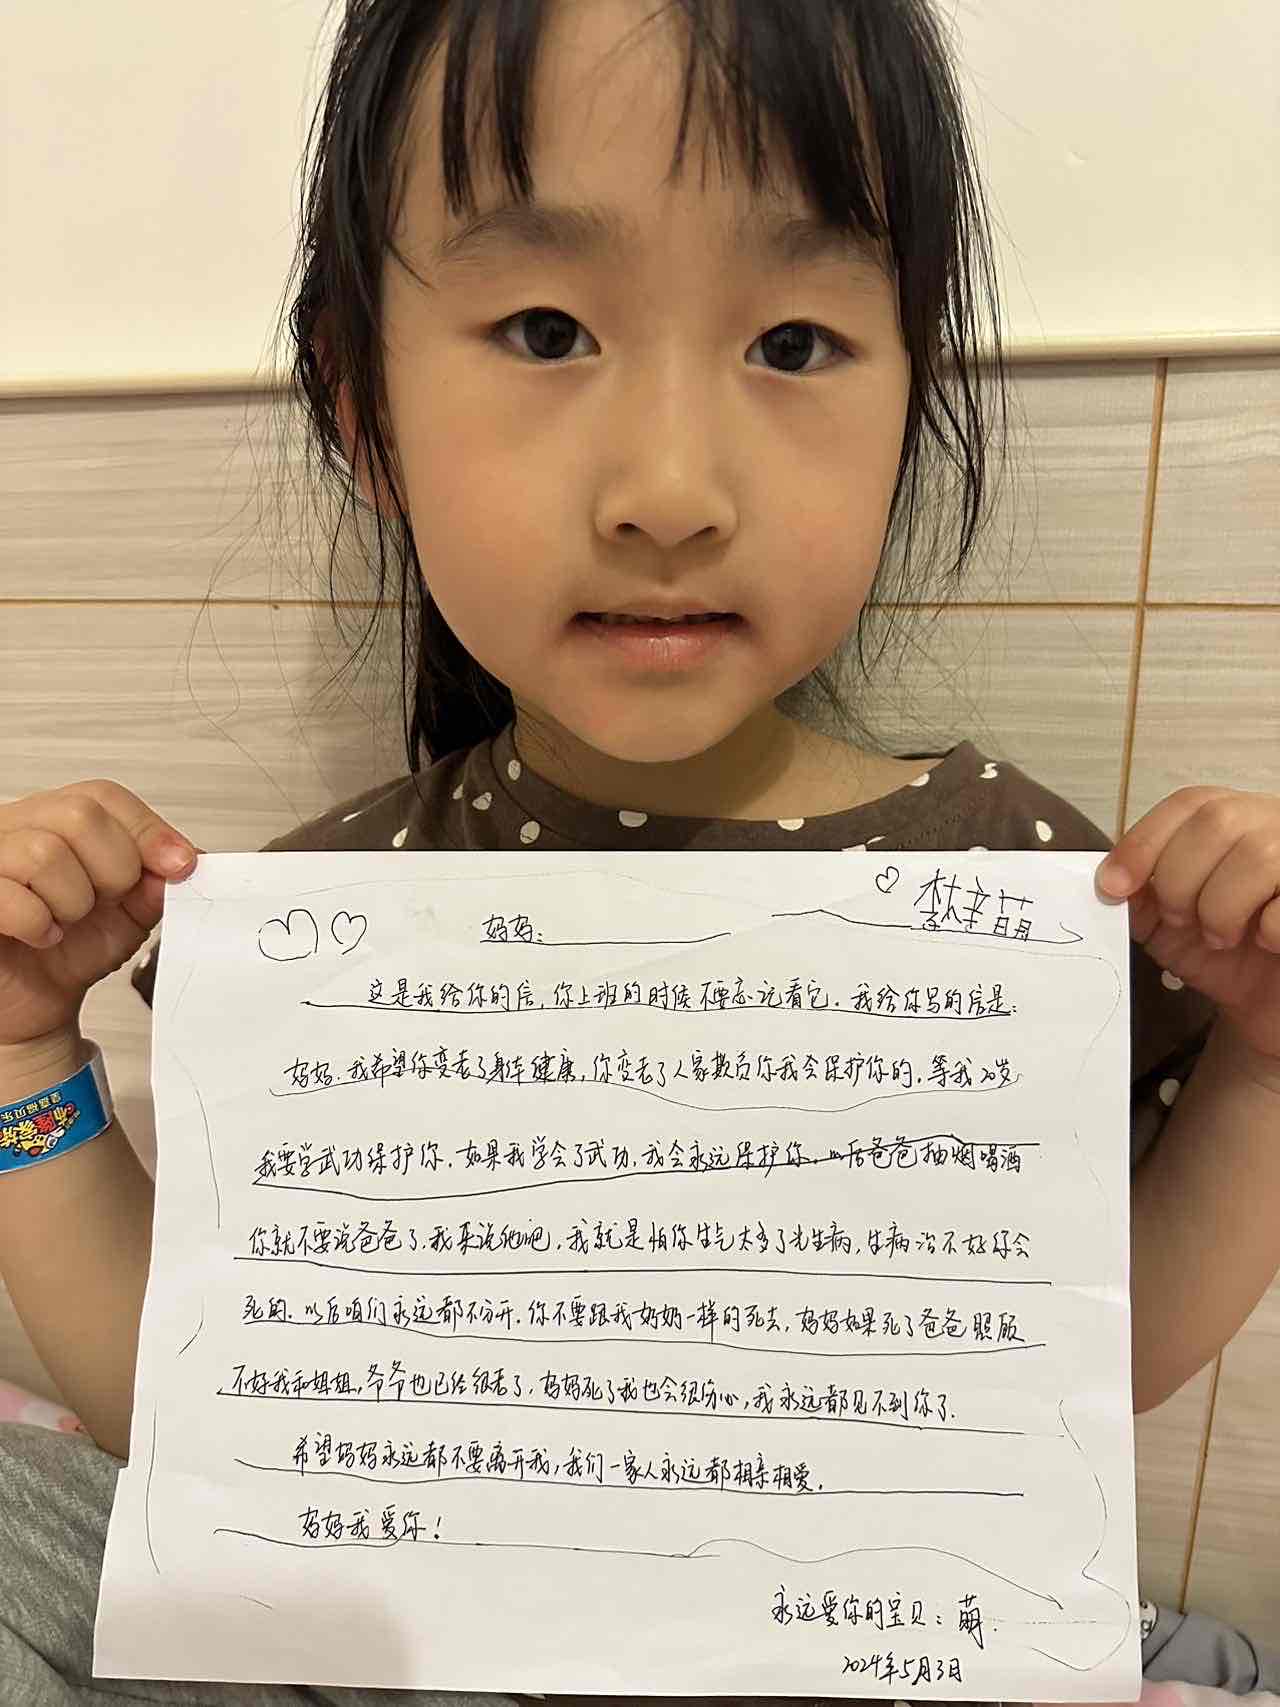 妈妈:
这是我给你的信,你上班的时候不要忘记看它.我给你写的信是:
妈妈.我希望你变老了身体健康,你变老了人家欺负你我会保护你的.等我20岁
我要学武功保护你.如果我学会了武功,我会永远保护你.以后爸爸抽烟喝酒
你就不要说爸爸了,我来说他吧,我就是怕你生气太多了光生病,生病治不好你会
死的.以后咱们永远都不分开.你不要跟我奶奶一样的死去,妈妈如果死了爸爸照顾
不好我和姐姐,爷爷也已经很老了,妈妈死了我也会很伤心,我永远都见不到你了.
希望妈妈永远都不要离开我,我们一家人永远都相亲相爱.
妈妈我爱你!
永远爱你的宝贝:萌.
2024年5月3日